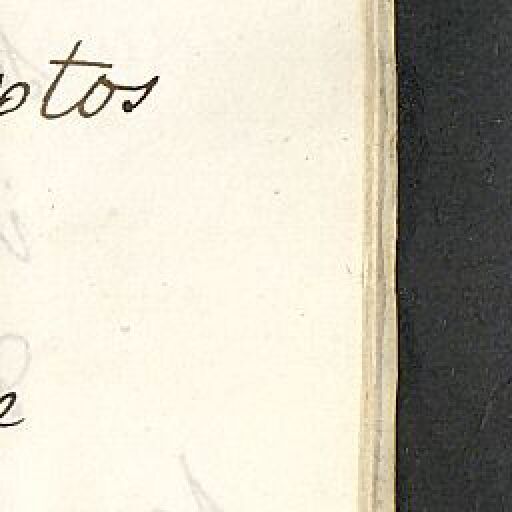 ptos
e